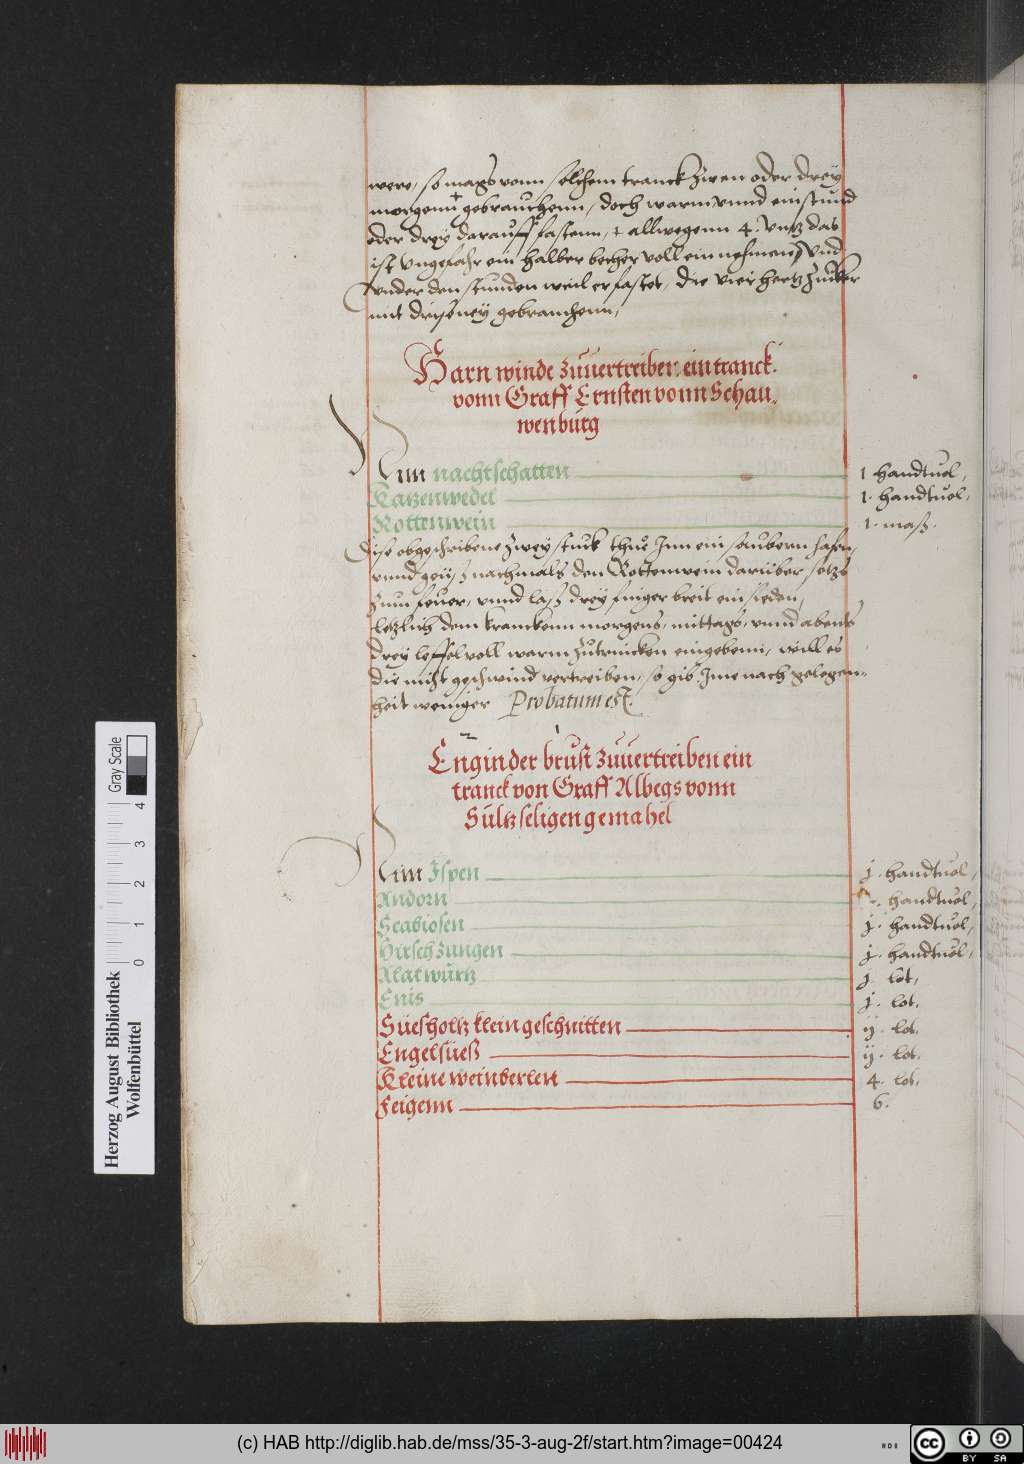 were, so mags vonn solchem tranck zwen oder drey
morgenn gebrauchenn, doch warm vnnd ein stund
oder drey darauff fastenn, + allwegenn 4. Vntz das
ist Vngefahr ein halber becher voll ein nehmen) Vnd
vnder den stunden weil er fastet, die vier hertz Zucker
mit drisney gebrauchenn,
Harn winde zuuertreiben ein tranck.
vonn Graff Ernsten vonn Schau,
wenburg
Nim nachtschatten 1 handtuol,
Katzenwedel 1. handtuol,
Rottenwein 1. maß.
Dise obgeschribene zwey stuck thue Jnn ein saubern hafen,
vnnd geuß nachmals den Rottenwein darüber setzs
zum feuer, vnnd laß drey finger breit ein sieden,
letzlich dem kranckenn morgens, mittags, vnnd abents
drey leffel voll warm zutrincken eingebenn, will es
die nicht geschwind vertreiben, so gib Jme nach gelegen-
heit weniger Probatum est.
Engin der brust zuuertreiben ein
tranck von Graff Albegs vonn
Sultz seligen gemahel
Nim Jspen j. handtuol,
Andorn handtuol,
Scabiosen j. handtuol,
Hirschzungen j. handtuol,
Alatwurtz j. lot,
Enis j. lot.
Süesholtz klein geschnitten ij. lot.
Engelsüeß ij. lot.
Kleine weinberlen 4. lot.
Feigenn 6.
Gray Scale
0 1 2 3 4
Herzog August Bibliothek
Wolfenbüttel
(c) HAB http://diglib.hab.de/mss/35-3-aug-2f/start.htm?image=00424
cc BY SA